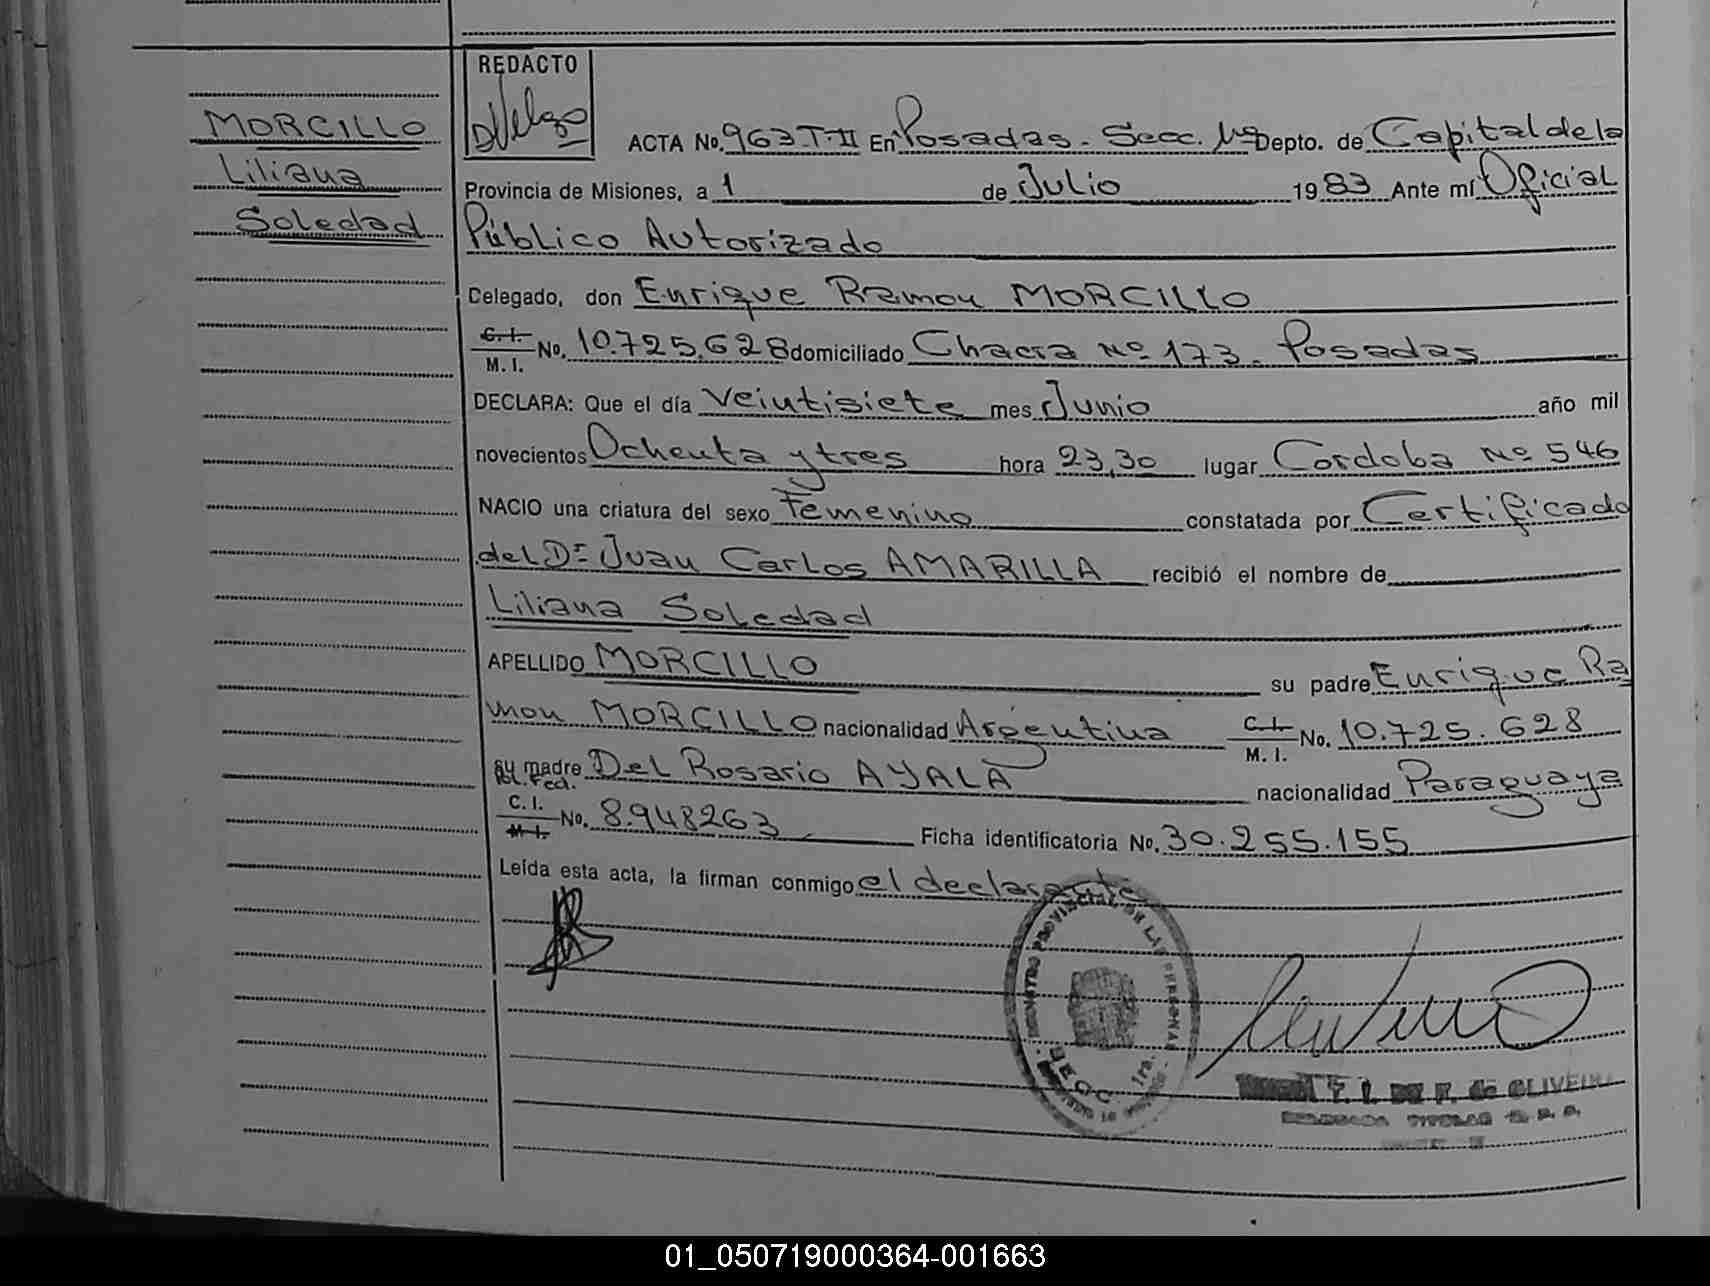 MORCILLO
Liliana
Soledad
REDACTO
ACTA No. 963.T-II En Posadas. Secc. 1ra Depto. de Capital de la
Provincia de Misiones, a 1 de Julio 1983 Ante mí Oficial
Público Autorizado
Delegado, don Enrique Ramon MORCILLO
C. I.
M. I.
No. 10.725.628 domiciliado Chacra Nº 173. Posadas
DECLARA: Que el día Veintisiete mes Junio año mil
novecientos Ochenta y tres hora 23,30 lugar Cordoba Nº 546
NACIO una criatura del sexo Femenino constatada por Certificado
del Dr. Juan Carlos AMARILLA recibió el nombre de
Liliana Soledad
APELLIDO MORCILLO su padre Enrique Ra
mon MORCILLO nacionalidad Argentina C. I. M. I. No. 10.725.628
su madre Del Rosario AYALA nacionalidad Paraguaya
Pol. Fed.
C. I.
M. I.
No. 8.948263 Ficha identificatoria No. 30.255.155
Leída esta acta, la firman conmigo el declarante
REGISTRO PROVINCIAL DE LAS PERSONAS
SECC. 1ra.
F. de OLIVEIRA
01_050719000364-001663